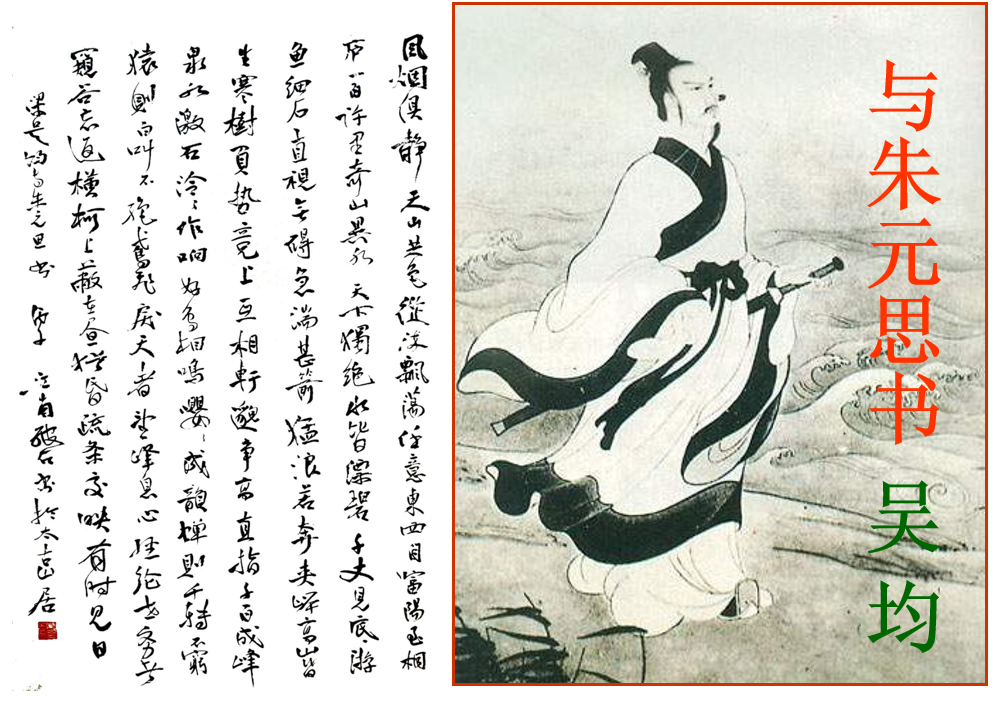 与朱元思书
吴均
风烟俱静天山共色從流飄蕩任意東西自富陽至桐
庐一百许里奇山異水天下獨绝水皆漂碧千丈見底游
鱼细石直視無碍急湍甚箭猛浪若奔夹岸高山皆
生寒樹負势竞上互相軒邈争高直指千百成峰
泉水激石泠泠作响好鸟相鳴嚶嚶成韻蝉則千转不窮
猿則百叫不绝鳶飛戾天者望峰息心经纶世务者
窺谷忘返横柯上蔽在昼犹昏疏条交映有时见日
梁吴均与朱元思书